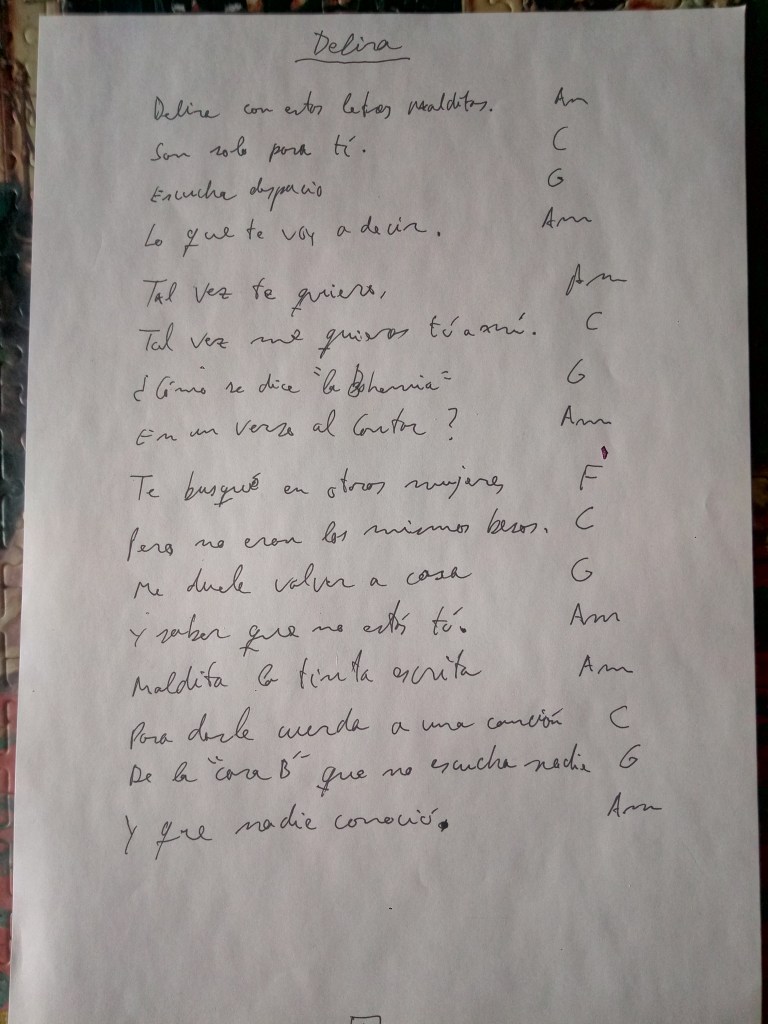 Delira
Delira con estas letras malditas. Am
Son solo para tí. C
Escucha despacio G
Lo que te voy a decir. Am
Tal vez te quiera, Am
Tal vez me quieras tú a mí. C
¿Cómo se dice "la Bohemia" G
En un verso al Cantar? Am
Te busqué en otras mujeres F
Pero no eran los mismos besos. C
Me duele volver a casa G
Y saber que no estás tú. Am
Maldita la tinta escrita Am
Para darle cuerda a una canción C
De la "cara B" que no escucha nadie G
Y que nadie conoció. Am